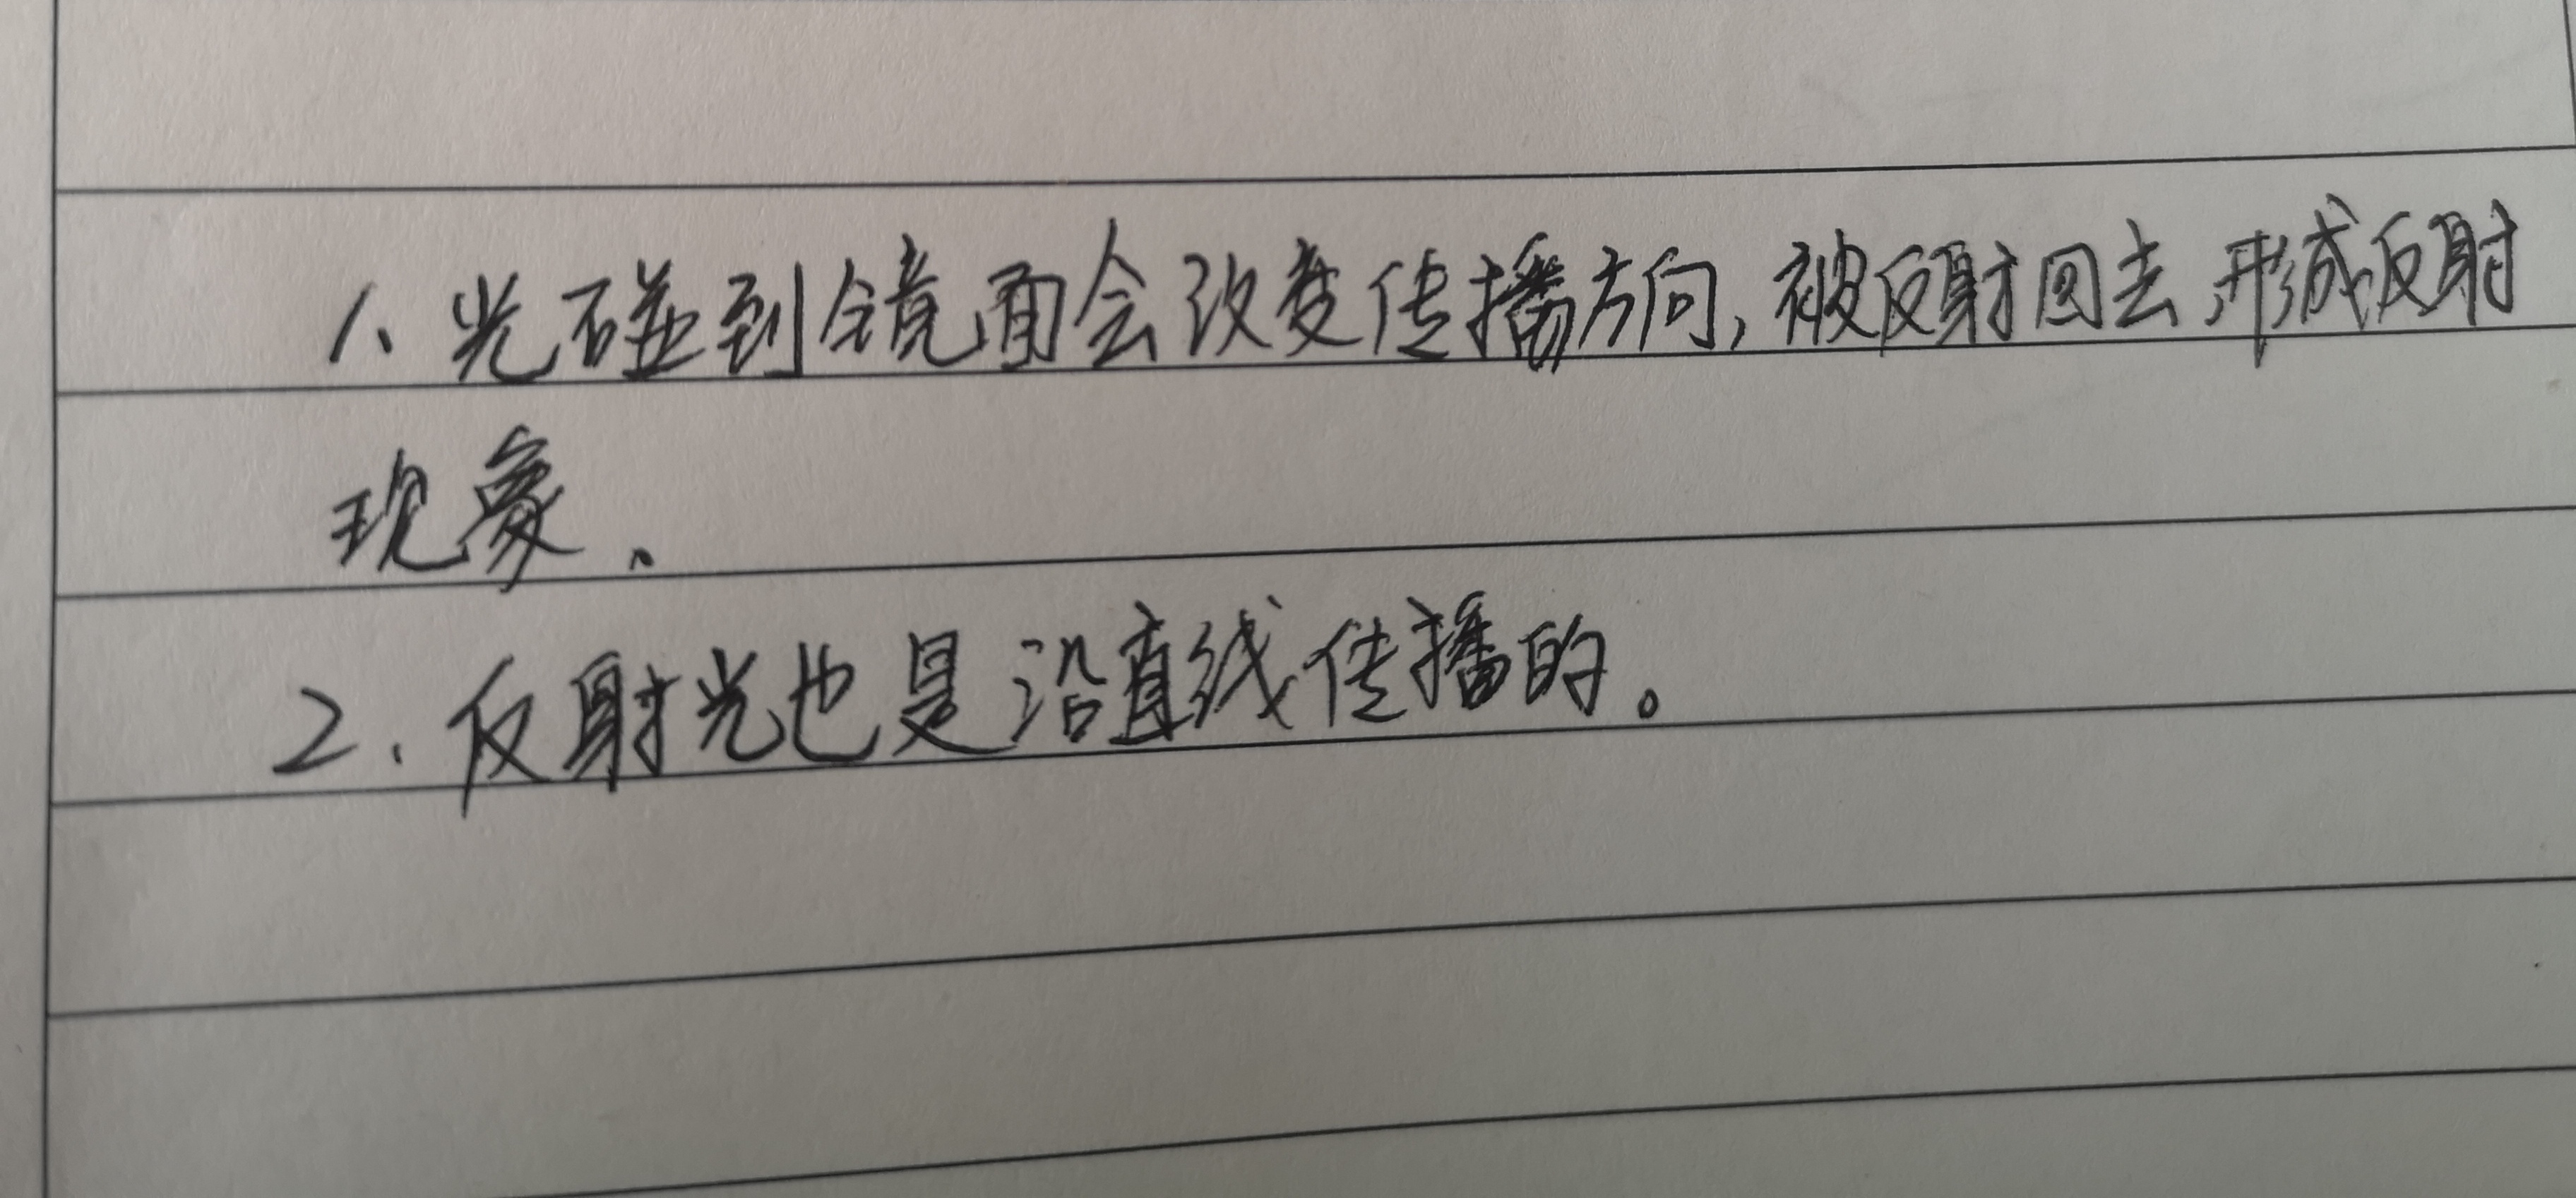 1、光碰到镜面会改变传播方向,被反射回去,形成反射
现象.
2.反射光也是沿直线传播的。